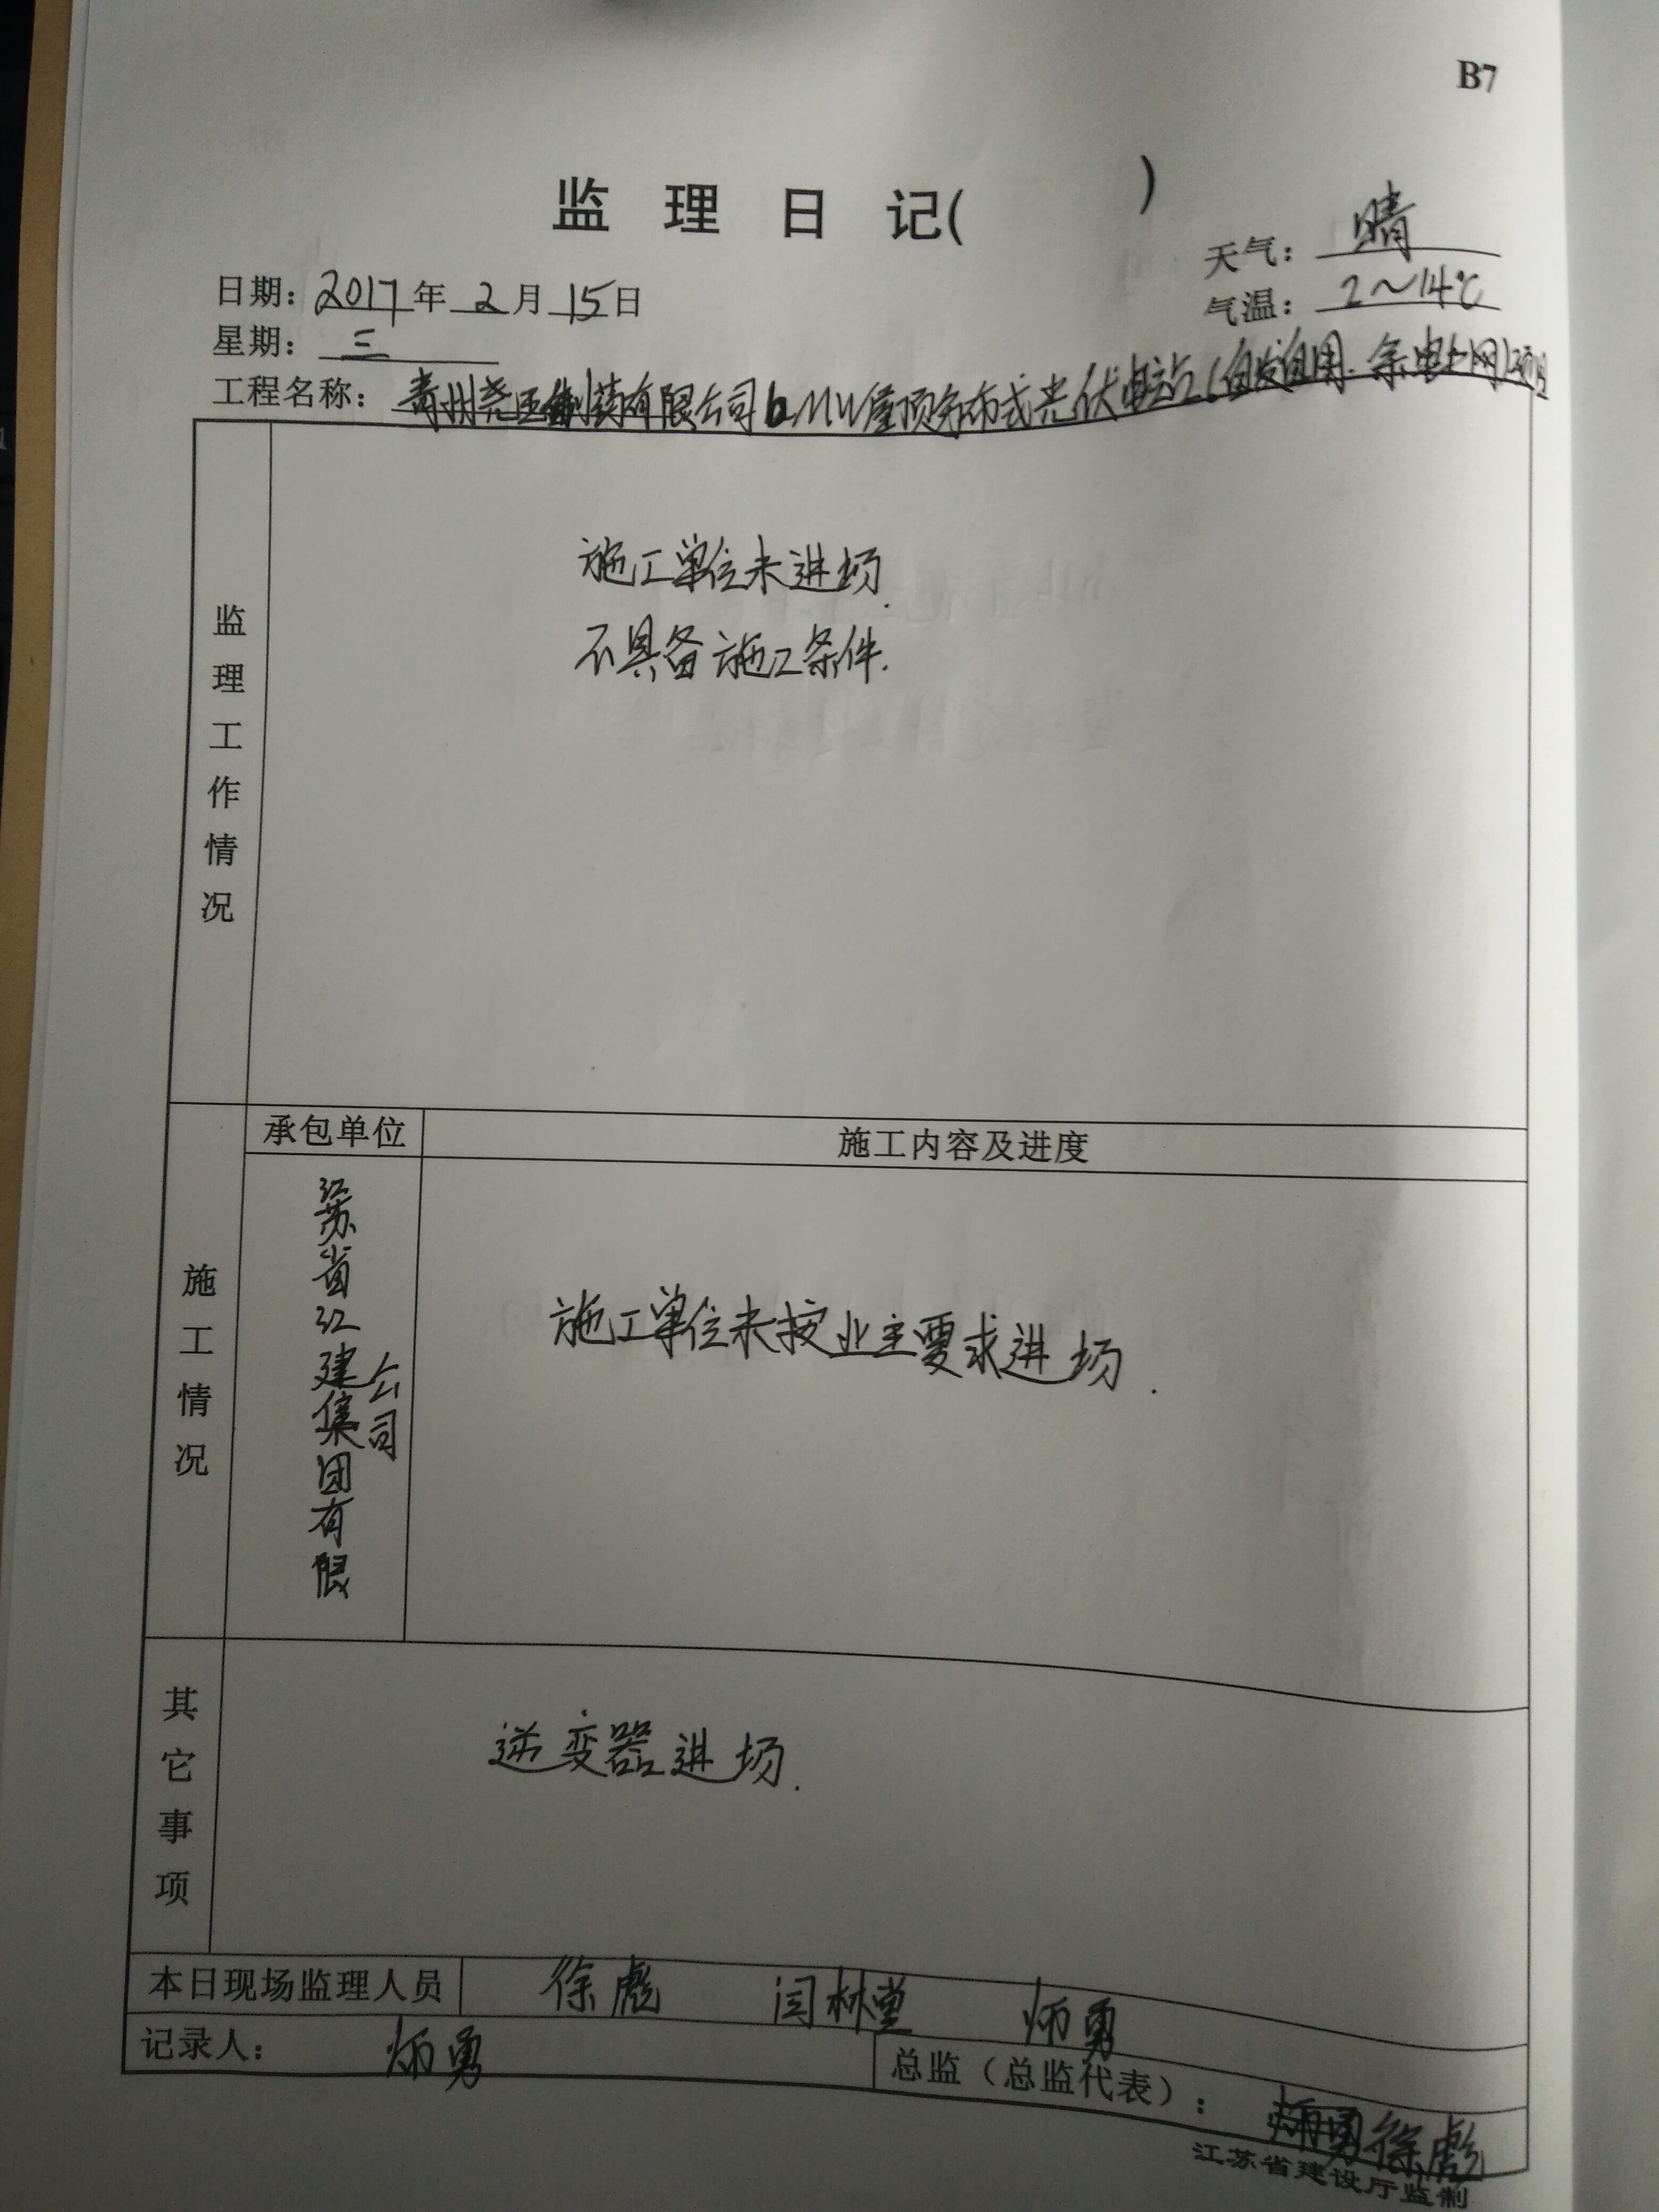 B7
监理日记( )
天气：晴
日期：2017年2月15日
气温：2～14℃
星期：三
工程名称：青州尧王制药有限公司6MW屋顶分布式光伏电站(自发自用.余电上网)项目
监理工作情况
施工单位未进场.
不具备施工条件.
施工情况
承包单位
施工内容及进度
江苏省江建集团有限公司
施工单位未按业主要求进场.
其它事项
逆变器进场.
本日现场监理人员 徐彪 闫林堂 炳勇
记录人：炳勇
总监（总监代表）：徐彪
江苏省建设厅监制